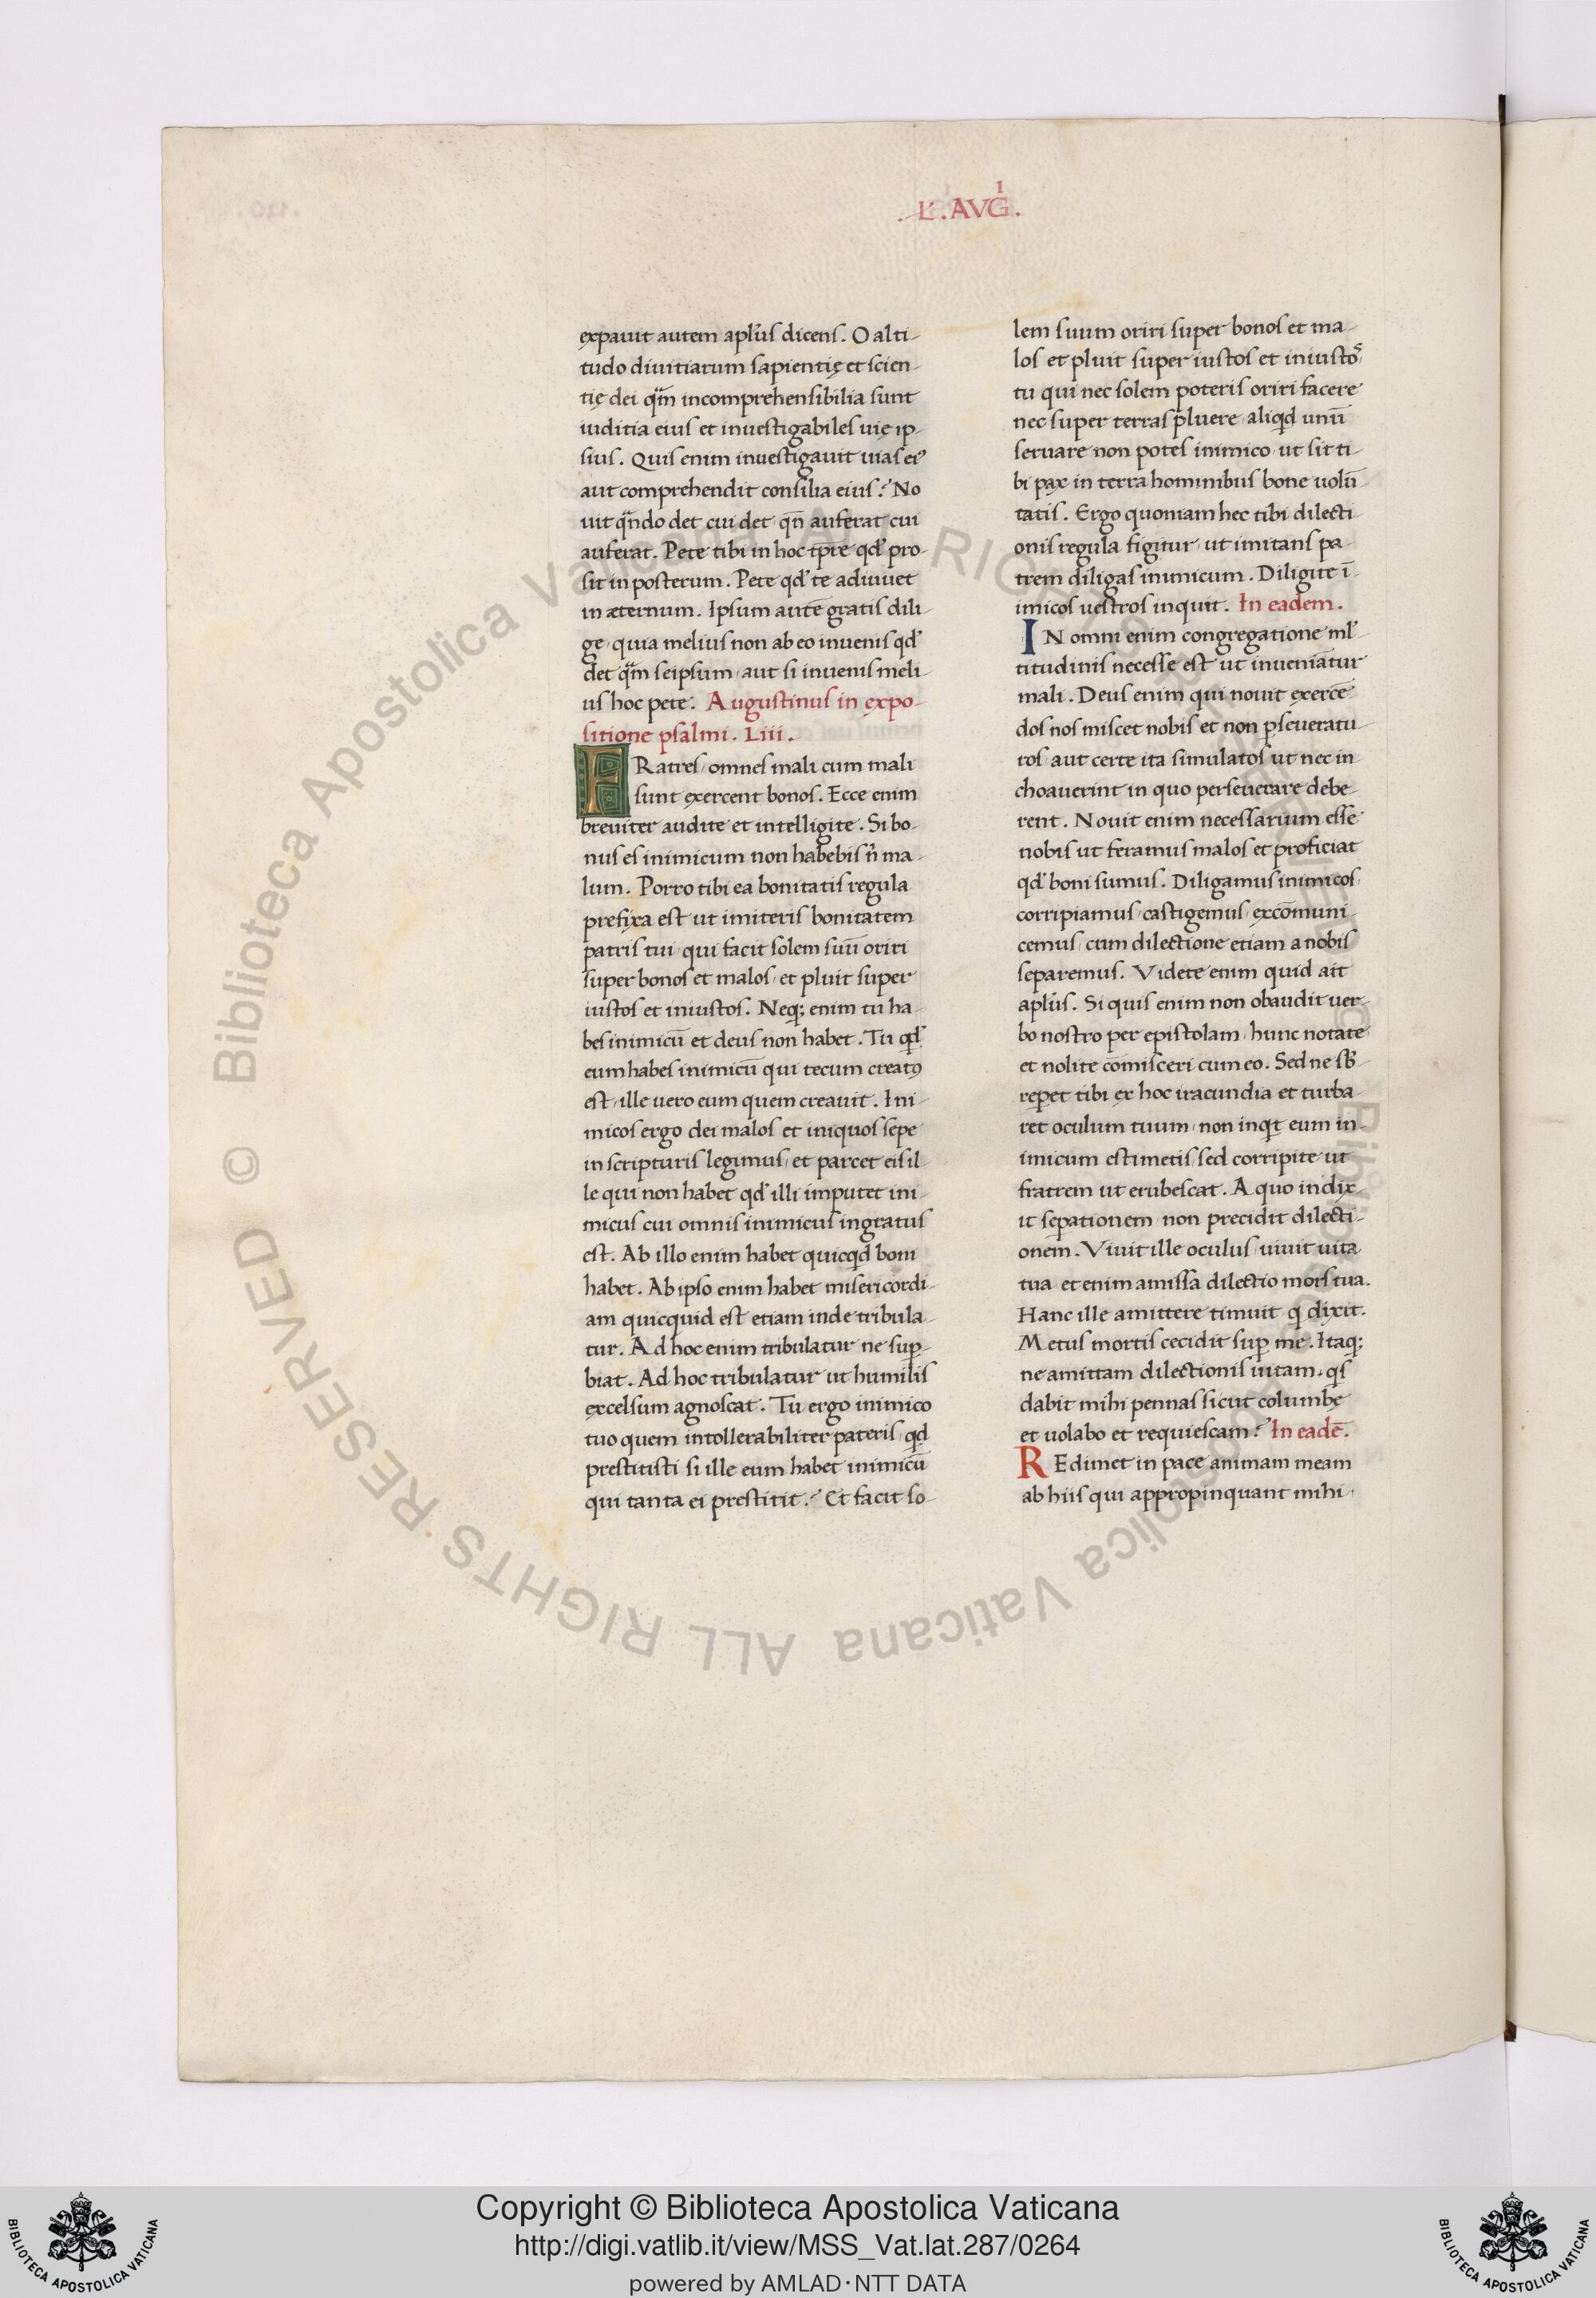 . L̕ . AVG̍ .
expauit autem apl̓us dicens . O alti-
tudo diuitiarum sapientię et scien-
tię dei qͣm̄ incomprehensibilia sunt
iuditia eius et inuestigabiles uię ip-
sius . Quis enim inuestigauit uias eiꝰ
aut comprehendit consilia eius ? No
uit qͣndo det cui det qn̄ auferat cui
auferat . Pete tibi in hoc tp̄re qđ pro-
sit in posterum . Pete qđ te adiuuet
in æternum . Ipsum autē gratis dili-
ge quia melius non ab eo inuenis qđ
det qͣm̄ seipsum aut si inuenis meli
us hoc pete . Augustinus in expo-
sitione psalmi . Liii .
FRatres omnes mali cum mali
sunt exercent bonos . Ecce enim
breuiter audite et intelligite . Si bo-
nus es inimicum non habebis n̓ ma-
lum . Porro tibi ea bonitatis regula
prefixa est ut imiteris bonitatem
patris tui qui facit solem suū oriri
super bonos et malos et pluit super
iustos et iniustos . Neq; enim tu ha-
bes inimicū et deus non habet . Tu qđ
eum habes inimicū qui tecum creatꝯ
est ille uero eum quem creauit . Ini-
micos ergo dei malos et iniquos sepe
in scripturis legimus et parcet eis il-
le qui non habet qđ illi imputet ini-
micus cui omnis inimicus ingratus
est . Ab illo enim habet quicqd boni
habet . Ab ipso enim habet misericordi-
am quicquid est etiam inde tribula-
tur . Ad hoc enim tribulatur ne suꝑ-
biat . Ad hoc tribulatur ut humilis
excelsum agnoscat . Tu ergo inimico
tuo quem intollerabiliter pateris qd
prestitisti si ille eum habet inimicū
qui tanta ei prestitit ? Et facit so-
lem suum oriri super bonos et ma-
los et pluit super iustos et iniustoˢ
tu qui nec solem poteris oriri facere
nec super terras pluere aliqd unū
seruare non potes inimico ut sit ti-
bi pax in terra hominibus bone uolū
tatis . Ergo quoniam hec tibi dilecti
onis regula figitur ut imitans pa-
trem diligas inimicum . Diligite ī-
imicos uestros inquit . In eadem .
IN omni enim congregatione ml̓-
titudinis necesse est ut inueniātur
mali . Deus enim qui nouit exercē-
dos nos miscet nobis et non ꝑseueratu-
ros aut certe ita simulatos ut nec in
choauerint in quo perseuerare debe-
rent . Nouit enim necessarium esse
nobis ut feramus malos et proficiat
qđ boni sumus . Diligamus inimicos
corripiamus castigemus excōmuni
cemus cum dilectione etiam a nobis
separemus . Videte enim quid ait
apl̓us . Si quis enim non obaudit uer-
bo nostro per epistolam hunc notate
et nolite cōmisceri cum eo . Sed ne sƀ
repet tibi ex hoc iracundia et turba
ret oculum tuum non inqt eum in-
imicum estimetis sed corripite ut
fratrem ut erubescat . A quo indix-
it seꝑationem non precidit dilecti-
onem . Viuit ille oculus uiuit uita
tua et enim amissa dilectio mors tua.
Hanc ille amittere timuit q dixit.
Metus mortis cecidit suꝑ me . Itaq;
ne amittam dilectionis uitam . qs
dabit mihi pennas sicut columbę
et uolabo et requiescam ? In eadē .
REdimet in pace animam meam
ab hiis qui appropinquant mihi
© Biblioteca Apostolica Vaticana ALL RIGHTS RESERVED
© Biblioteca Apostolica Vaticana ALL RIGHTS RESERVED
Copyright © Biblioteca Apostolica Vaticana
http://digi.vatlib.it/view/MSS_Vat.lat.287/0264
powered by AMLAD·NTT DATA
BIBLIOTECA APOSTOLICA VATICANA
BIBLIOTECA APOSTOLICA VATICANA